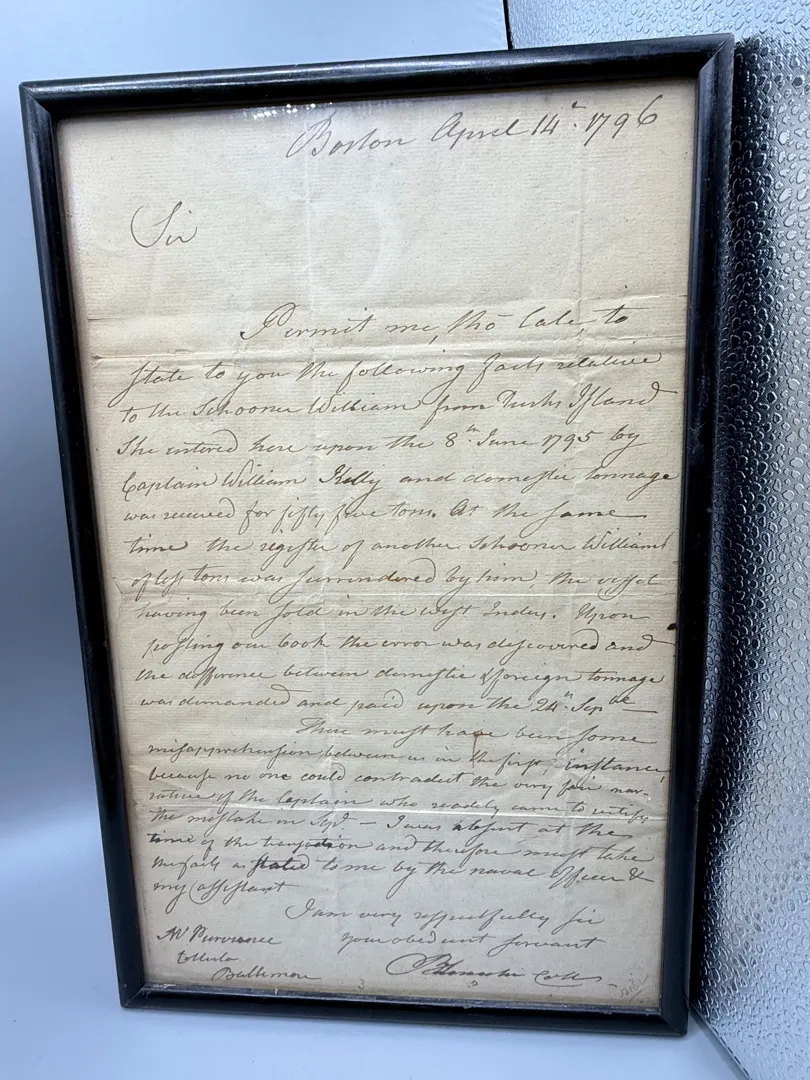 Boston April 14th 1796
Sir
Permit me, tho late, to
state to you the following facts relative
to the Schooner William from Turks Island
She entered here upon the 8th June 1795 by
Captain William Kelly and domestic tonnage
was received for fifty five tons. At the same
time the register of another Schooner William
of less tons was surrendered by him, the vessel
having been sold in the west Indes. Upon
posting our book the error was discovered and
the difference between domestic & foreign tonnage
was demanded and paid upon the 24th Sepbr
There must have been some
misapprehension between us in the first instance,
because no one could contradict the very fair nar-
rative of the Captain who readely came to rectify
the mistake in Sept — I was absent at the
time of the transaction and therefore must take
the facts as stated to me by the naval officer &
my assistant
I am very respectfully sir
your obedient servant
B Lincoln Coll
Purviance
Baltimore